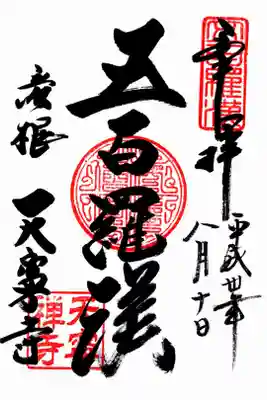 奉拝
平成卅年
八月十日
五百羅漢
彦根
天寧寺
天寧禅寺